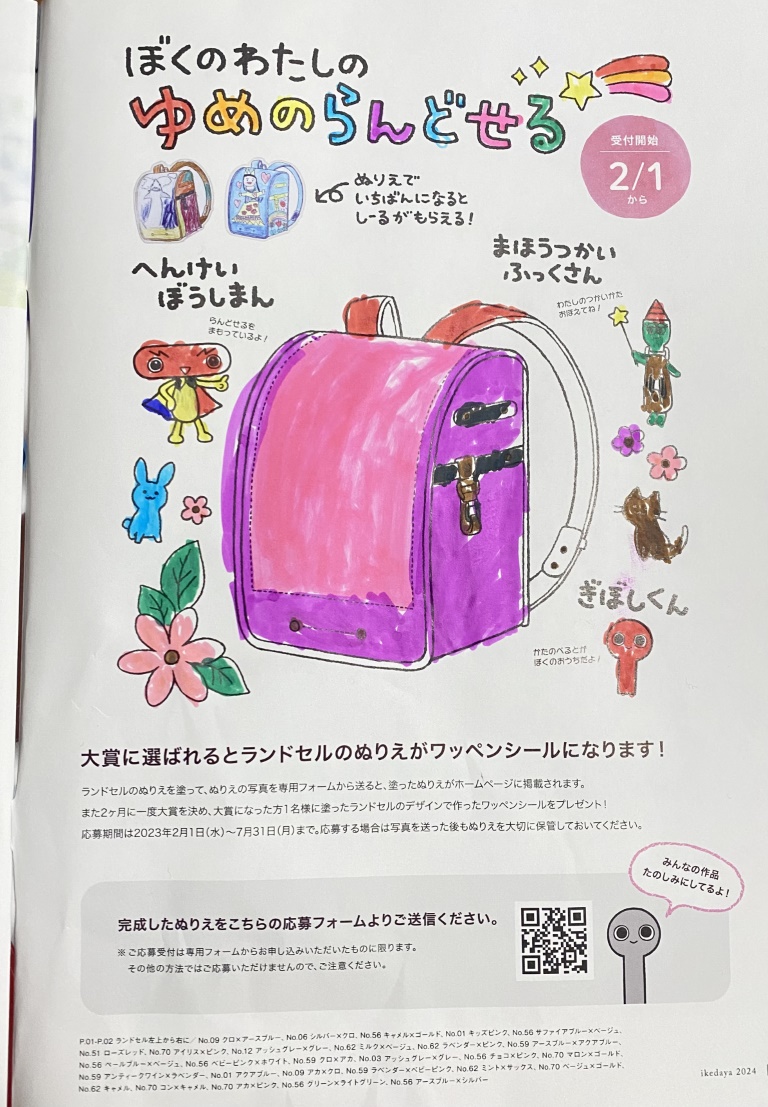 ぼくのわたしの
ゆめのらんどせる
受付開始
2/1
から
ぬりえで
いちばんになると
しーるがもらえる!
へんけい
ぼうしまん
らんどせるを
まもっているよ!
まほうつかい
ふっくさん
わたしのつかいかた
おぼえてね!
ぎぼしくん
かたのべるとが
ぼくのおうちだよ!
大賞に選ばれるとランドセルのぬりえがワッペンシールになります!
ランドセルのぬりえを塗って、ぬりえの写真を専用フォームから送ると、塗ったぬりえがホームページに掲載されます。
また2ヶ月に一度大賞を決め、大賞になった方1名様に塗ったランドセルのデザインで作ったワッペンシールをプレゼント!
応募期間は2023年2月1日(水)〜7月31日(月)まで。応募する場合は写真を送った後もぬりえを大切に保管しておいてください。
みんなの作品
たのしみにしてるよ!
完成したぬりえをこちらの応募フォームよりご送信ください。
※ご応募受付は専用フォームからお申し込みいただいたものに限ります。
その他の方法ではご応募いただけませんので、ご注意ください。
P.01-P.02 ランドセル左上から右に/ No.09 クロ×アースブルー、No.06 シルバー×クロ、No.56 キャメル×ゴールド、No.01 キッズピンク、No.56 サファイアブルー×ベージュ、
No.51 ローズレッド、No.70 アイリス×ピンク、No.12 アッシュグレー×グレー、No.62 ミルク×ベージュ、No.62 ラベンダー×ピンク、No.59 アースブルー×アクアブルー、
No.56 ペールブルー×ベージュ、No.56 ベビーピンク×ホワイト、No.59 クロ×アカ、No.03 アッシュグレー×グレー、No.56 チョコ×ピンク、No.70 マロン×ゴールド、
No.59 アンティークワイン×ラベンダー、No.01 アクアブルー、No.09 アカ×クロ、No.59 ラベンダー×ベビーピンク、No.62 ミント×サックス、No.70 ベージュ×ゴールド、
No.62 キャメル、No.70 コン×キャメル、No.70 アカ×ピンク、No.56 グリーン×ライトグリーン、No.56 アースブルー×シルバー
ikedaya 2024